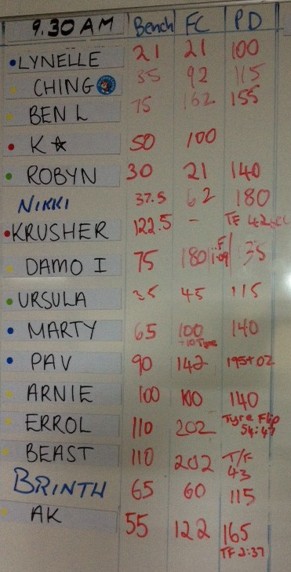 9.30 AM Bench FC PD
LYNELLE 21 21 100
CHING 35 92 115
BEN L 75 162 155
K☆ 50 100
ROBYN 30 21 140
NIKKI 37.5 62 180
KRUSHER 122.5 - TF
DAMO I 75 180 135
URSULA 45 115
MARTY 65 100 140
PAV 90 142
ARNIE 100 100 140
ERROL 110 202 Tyre Flip 54:47
BEAST 110 202 T/F 43
BRINTH 65 60 115
AK 55 122 165
TF 2:37